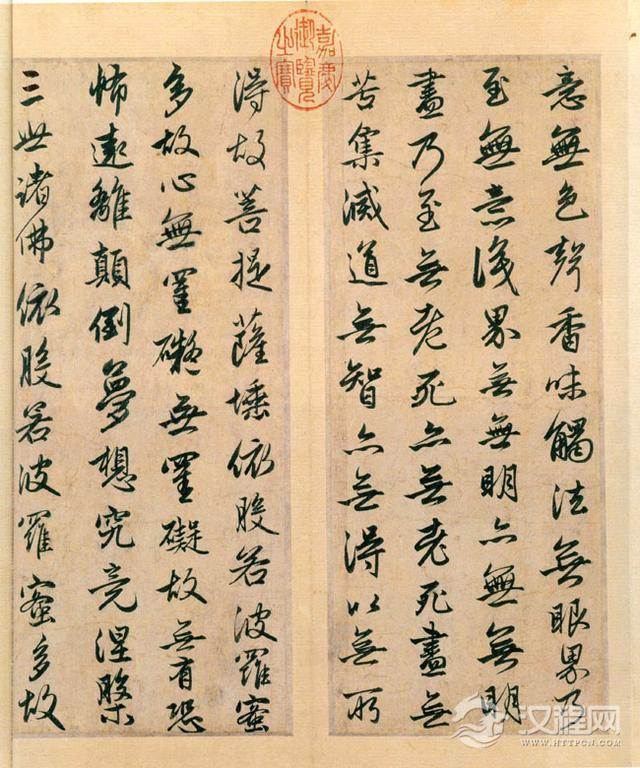 意無色聲香味觸法無眼界乃
至無意識界無無明亦無無明
盡乃至無老死亦無老死盡無
苦集滅道無智亦無得以無所
嘉慶
御覽
之寶
得故菩提薩埵依般若波羅蜜
多故心無罣礙無罣礙故無有恐
怖遠離顛倒夢想究竟涅槃
三世諸佛依般若波羅蜜多故
汉程网
WWW.HTTPCN.COM